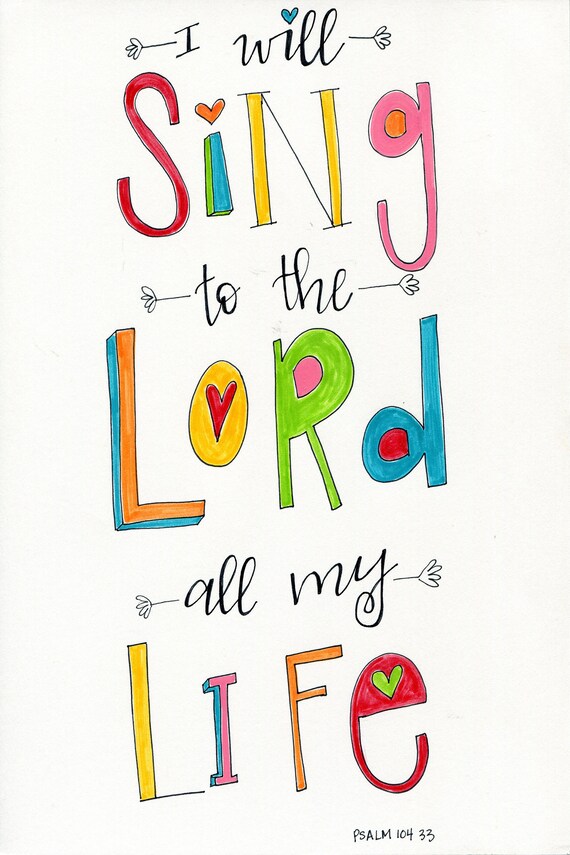 I will
SiNg
to the
LoRd
all my
LIFe
PSALM 104 33